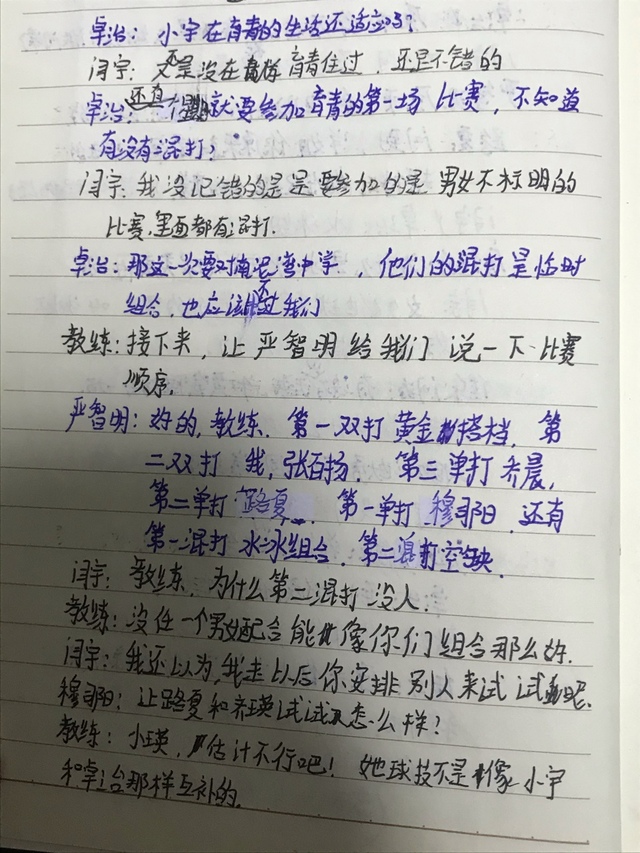 卓治：小宇在育青的生活还适应吗？
闫宇：又不是没在育青住过，还是不错的
卓治：还有一个星期就要参加育青的第一场比赛，不知道
有没有混打？
闫宇：我没记错的是是要参加的是男女不标明的
比赛，里面都有混打．
卓治：那这一次要对南泥湾中学，他们的混打是临时
组合，也应该不过我们
教练：接下来，让严智明给我们说一下比赛
顺序．
严智明：好的，教练．第一双打黄金搭档，第
二双打我，张百扬．第三单打齐晨，
第二单打路夏．第一单打穆司阳．还有
第一混打水冰组合．第二混打空缺．
闫宇：教练，为什么第二混打没人．
教练：没任一个男女配合能像你们组合那么好．
闫宇：我还以为，我走以后你安排别人来试试呢．
穆司阳：让路夏和齐瑛试试怎么样？
教练：小瑛，估计不行吧！她球技不是像小宇
和卓治那样互补的．